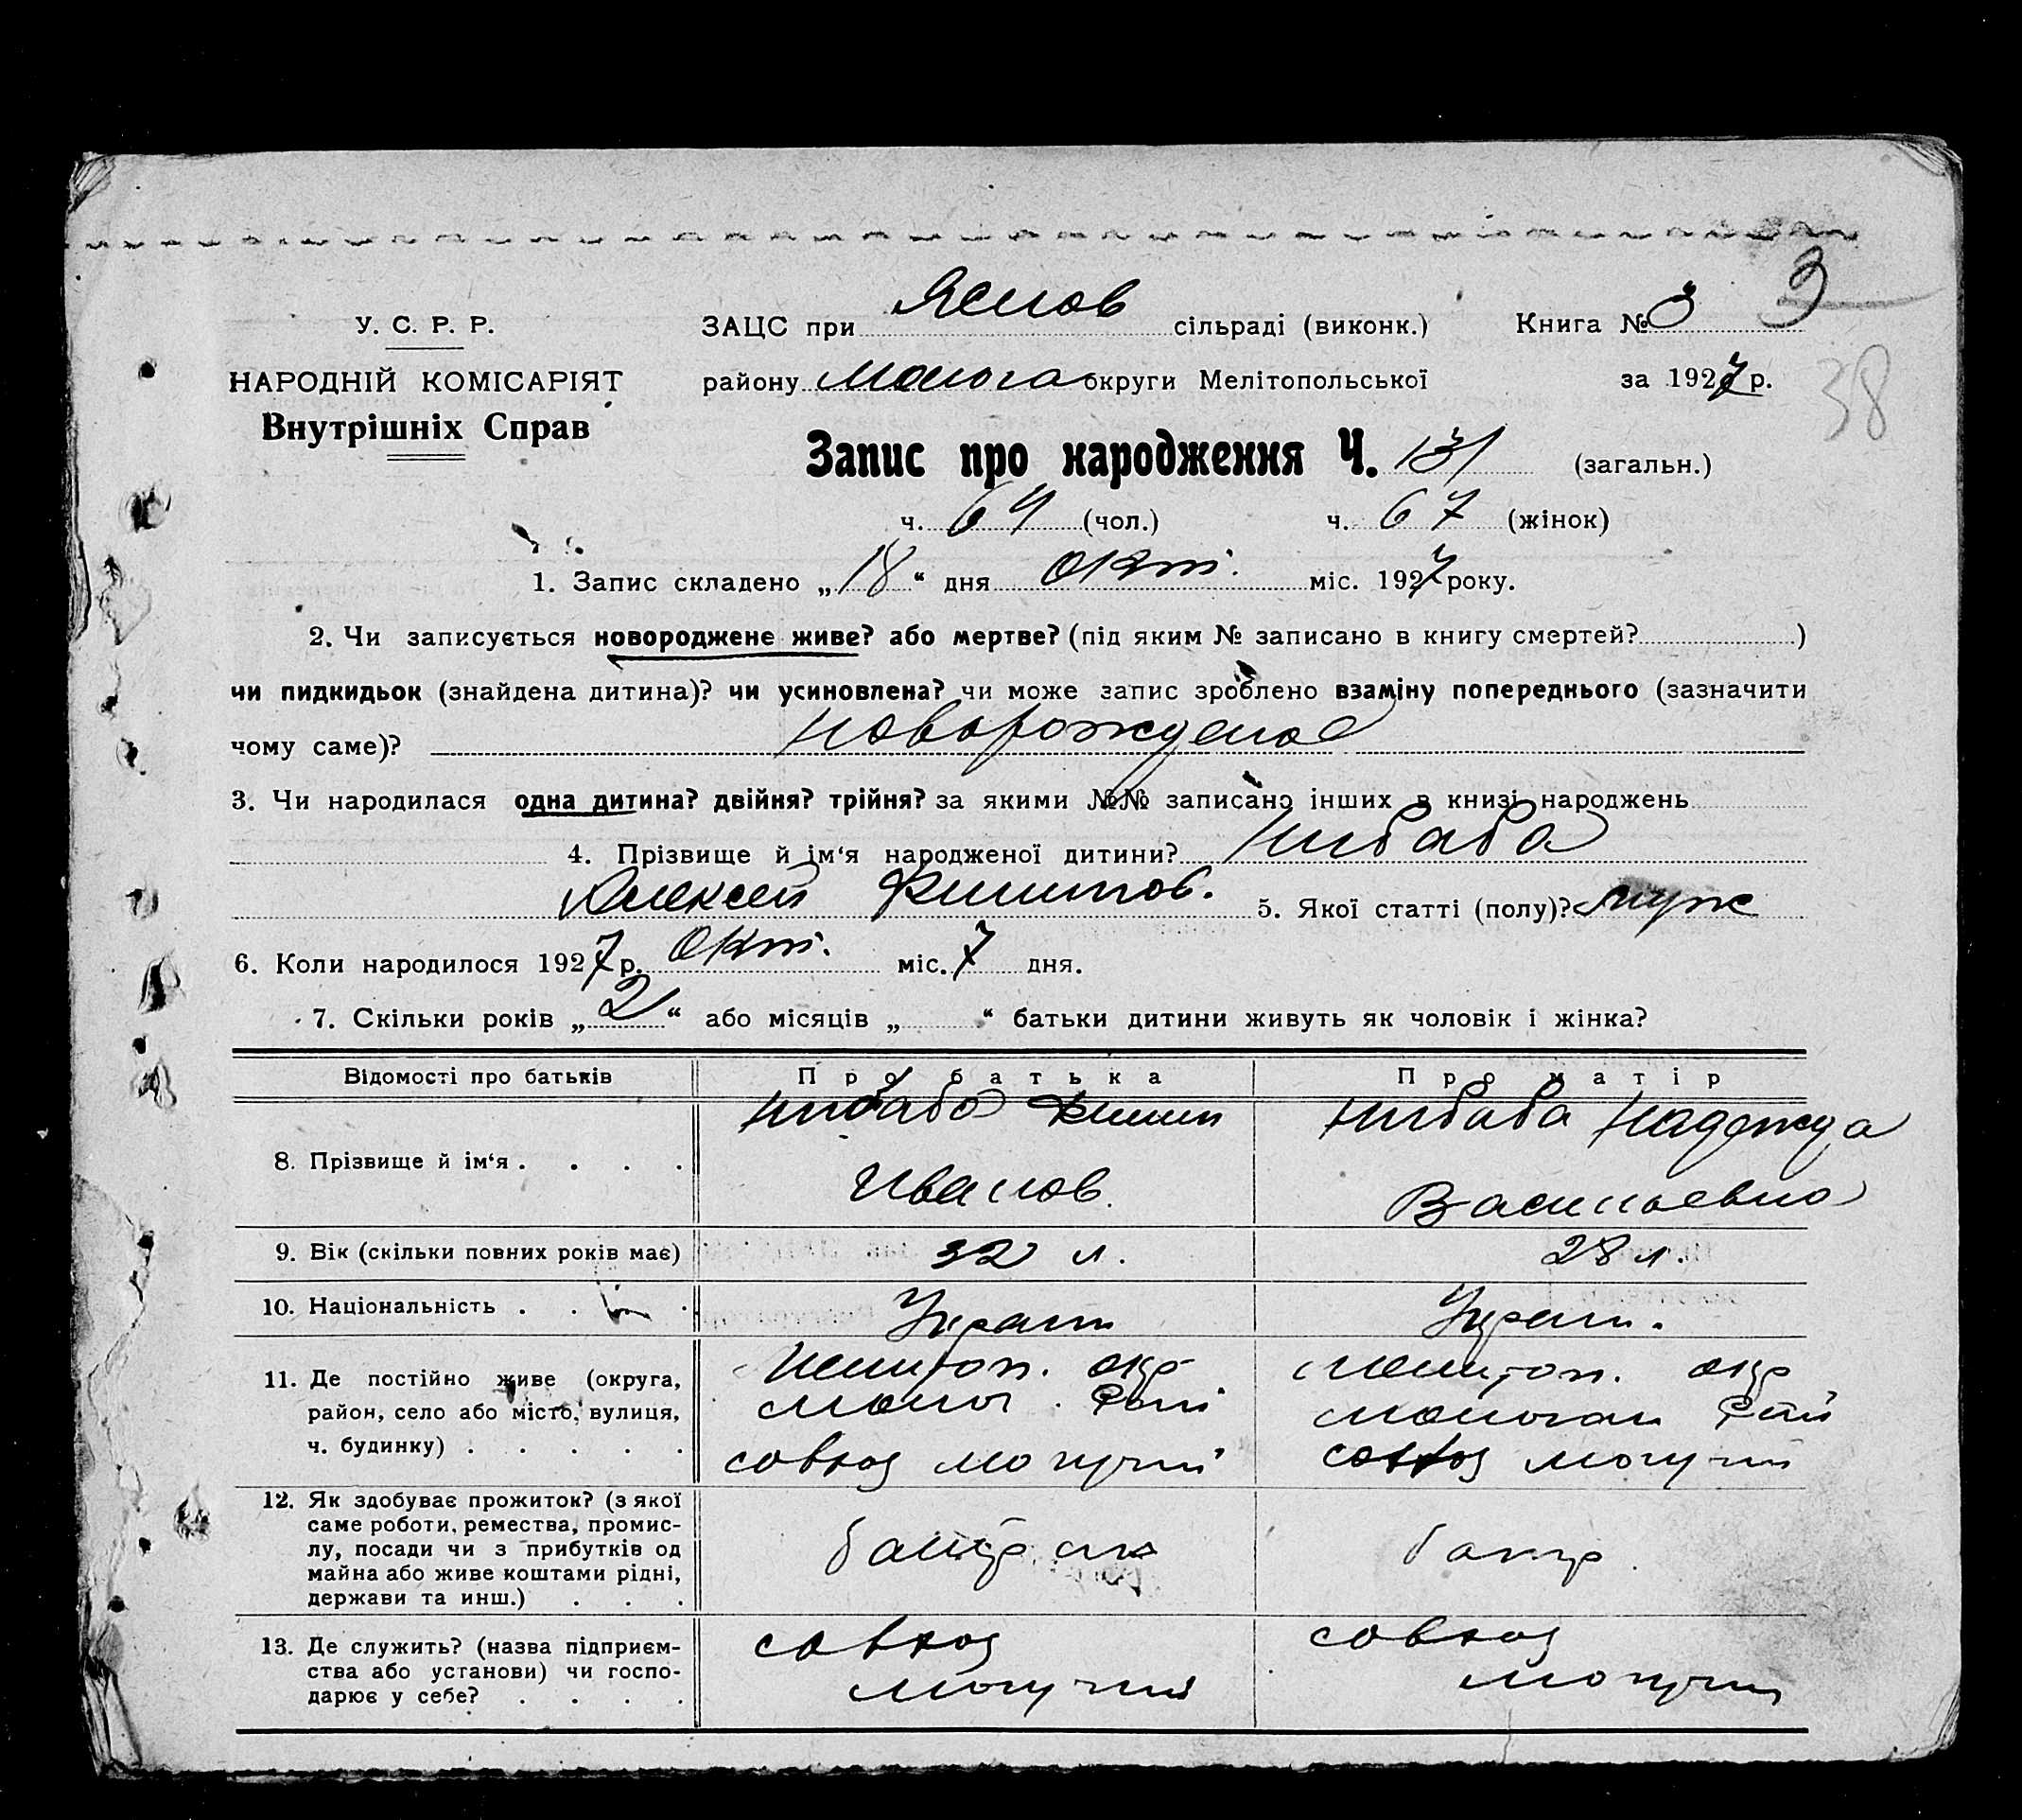 Яснов
У. С. Р. Р. ЗАЦС при сільраді (виконк.) Книга № 3 3
НАРОДНІЙ КОМІСАРІЯТ району округи Мелітопольської за 1927 р. 38
Внутрішніх Справ
Запис про народження Ч. 131 (загальн.)
ч. 64 (чол.) ч. 67 (жінок)
1. Запис складено „18“ дня Окт. міс. 1927 року.
2. Чи записується новороджене живе? або мертве? (під яким № записано в книгу смертей? )
чи пидкидьок (знайдена дитина)? чи усиновлена? чи може запис зроблено взаміну попереднього (зазначити
чому саме)? новорожденое
3. Чи народилася одна дитина? двійня? трійня? за якими №№ записано інших в книзі народжень
4. Прізвище й ім‘я народженої дитини? Нибаба
Алексей Филипов. 5. Якої статті (полу)? муж
6. Коли народилося 1927 р. Окт. міс. 7 дня.
7. Скільки років „2“ або місяців „ “ батьки дитини живуть як чоловік і жінка?
Відомості про батьків Про батька Про матір
Нибаба Филип Нибаба Надежда
8. Прізвище й ім‘я . . . .
Иванов. Васильевна
9. Вік (скільки повних років має) 32 л. 28 л.
10. Національність . . . Украин Украин.
11. Де постійно живе (округа, Мелитоп. окр Мелитоп. окр
район, село або місто, вулиця, Рай Рай
ч. будинку) . . . . . совхоз могучий совхоз могучий
12. Як здобуває прожиток? (з якої
саме роботи, ремества, промис-
лу, посади чи з прибутків од батрак батр.
майна або живе коштами рідні,
держави та инш.) . . .
13. Де служить? (назва підприєм- совхоз совхоз
ства або установи) чи госпо-
дарює у себе? . . . . могучий могучий